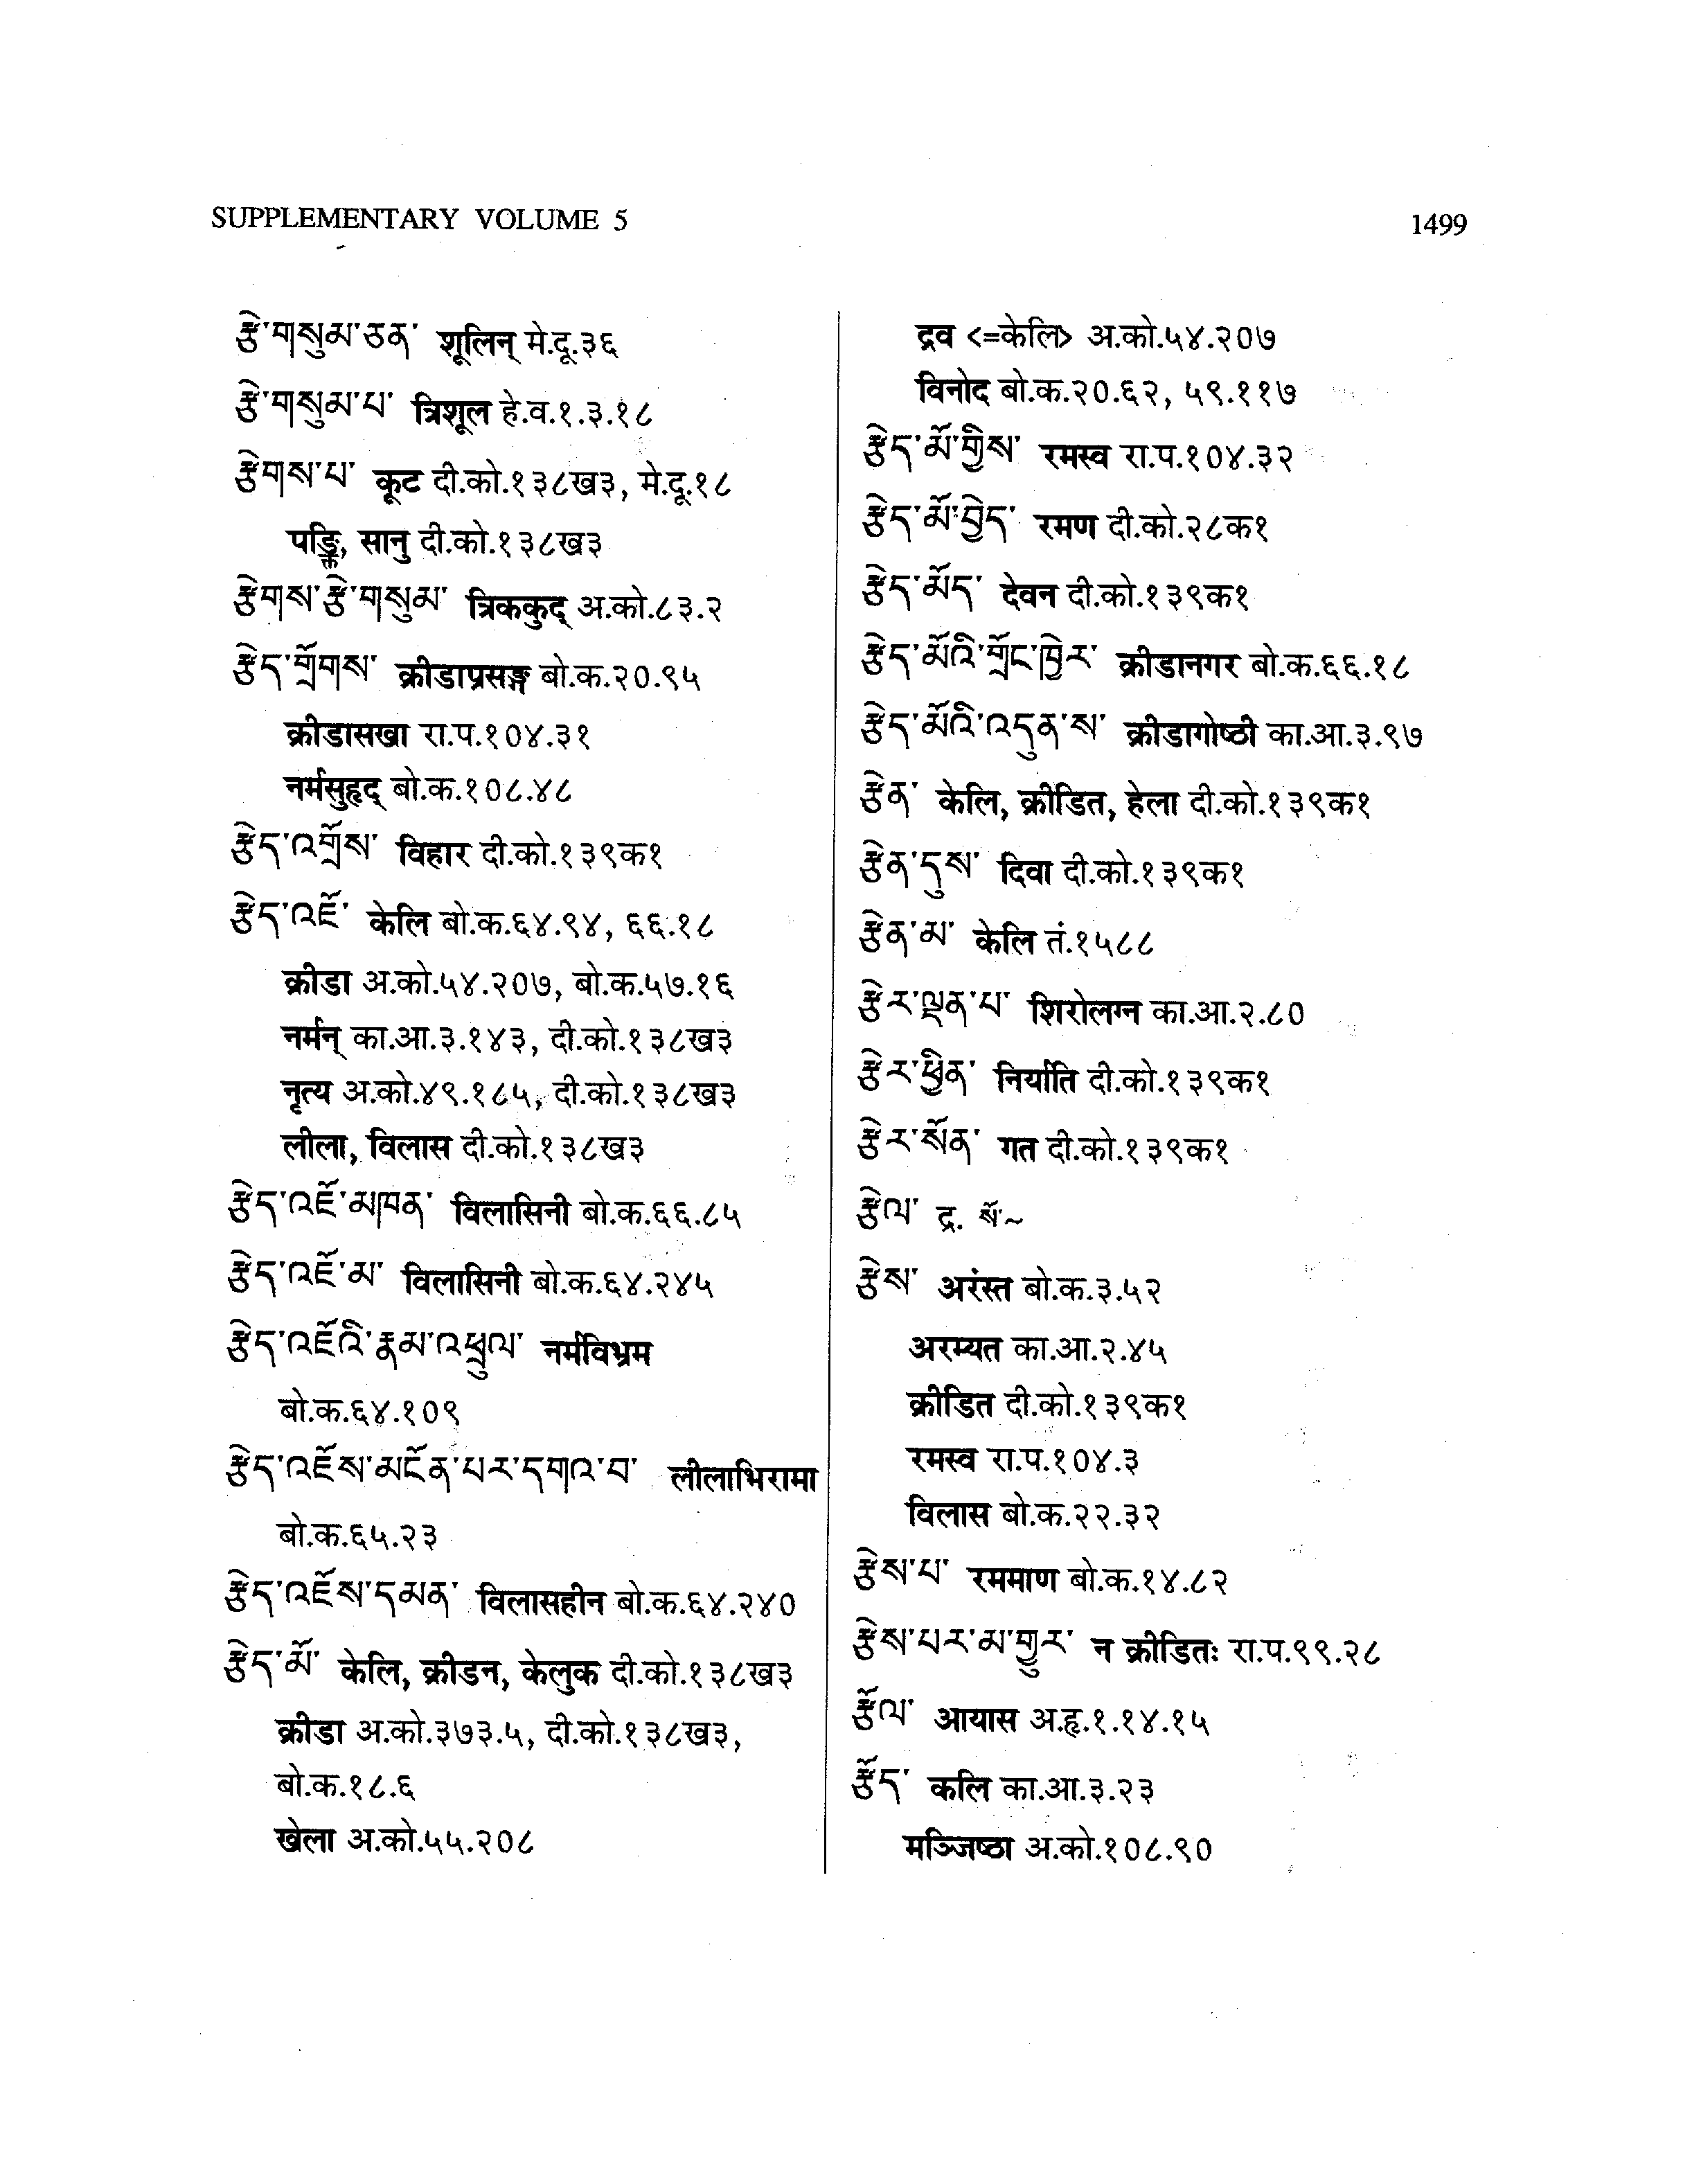 SUPPLEMENTARY VOLUME 5
1499
རྩེ་གསུམ་ཅན་ शूलिन् मे.दू.३६
རྩེ་གསུམ་པ་ त्रिशूल हे.व.१.३.१८
རྩེགས་པ་ कूट दी.को.१३८ख३, मे.दू.१८
पङ्क्ति, सानु दी.को.१३८ख३
རྩེགས་རྩེ་གསུམ་ त्रिककुद् अ.को.८३.२
རྩེད་གྲོགས་ क्रीडाप्रसङ्ग बो.क.२०.९५
क्रीडासखा रा.प.१०४.३१
नर्मसुहृद् बो.क.१०८.४८
རྩེད་འགྲོས་ विहार दी.को.१३९क१
རྩེད་འཇོ་ केलि बो.क.६४.९४, ६६.१८
क्रीडा अ.को.५४.२०७, बो.क.५७.१६
नर्मन् का.आ.३.१४३, दी.को.१३८ख३
नृत्य अ.को.४९.१८५, दी.को.१३८ख३
लीला, विलास दी.को.१३८ख३
རྩེད་འཇོ་མཁན་ विलासिनी बो.क.६६.८५
རྩེད་འཇོ་མ་ विलासिनी बो.क.६४.२४५
རྩེད་འཇོའི་རྣམ་འཕྲུལ་ नर्मविभ्रम
बो.क.६४.१०९
རྩེད་འཇོས་མངོན་པར་དགའ་བ་ लीलाभिरामा
बो.क.६५.२३
རྩེད་འཇོས་དམན་ विलासहीन बो.क.६४.२४०
རྩེད་མོ་ केलि, क्रीडन, केलुक दी.को.१३८ख३
क्रीडा अ.को.३७३.५, दी.को.१३८ख३,
बो.क.१८.६
खेला अ.को.५५.२०८
द्रव <=केलि> अ.को.५४.२०७
विनोद बो.क.२०.६२, ५९.११७
རྩེད་མོ་གྱིས་ रमस्व रा.प.१०४.३२
རྩེད་མོ་བྱེད་ रमण दी.को.२८क१
རྩེད་མོད་ देवन दी.को.१३९क१
རྩེད་མོའི་གྲོང་ཁྱེར་ क्रीडानगर बो.क.६६.१८
རྩེད་མོའི་འདུན་ས་ क्रीडागोष्ठी का.आ.३.९७
རྩེན་ केलि, क्रीडित, हेला दी.को.१३९क१
རྩེན་དུས་ दिवा दी.को.१३९क१
རྩེན་མ་ केलि तं.१५८८
རྩེར་ལྡན་པ་ शिरोलग्न का.आ.२.८०
རྩེར་ཕྱིན་ निर्याति दी.को.१३९क१
རྩེར་སོན་ गत दी.को.१३९क१
རྩེལ་ द्र. སོ་~
རྩེས་ अरंस्त बो.क.३.५२
अरम्यत का.आ.२.४५
क्रीडित दी.को.१३९क१
रमस्व रा.प.१०४.३
विलास बो.क.२२.३२
རྩེས་པ་ रममाण बो.क.१४.८२
རྩེས་པར་མ་གྱུར་ न क्रीडितः रा.प.९९.२८
རྩོལ་ आयास अ.हृ.१.१४.१५
རྩོད་ कलि का.आ.३.२३
मञ्जिष्ठा अ.को.१०८.९०